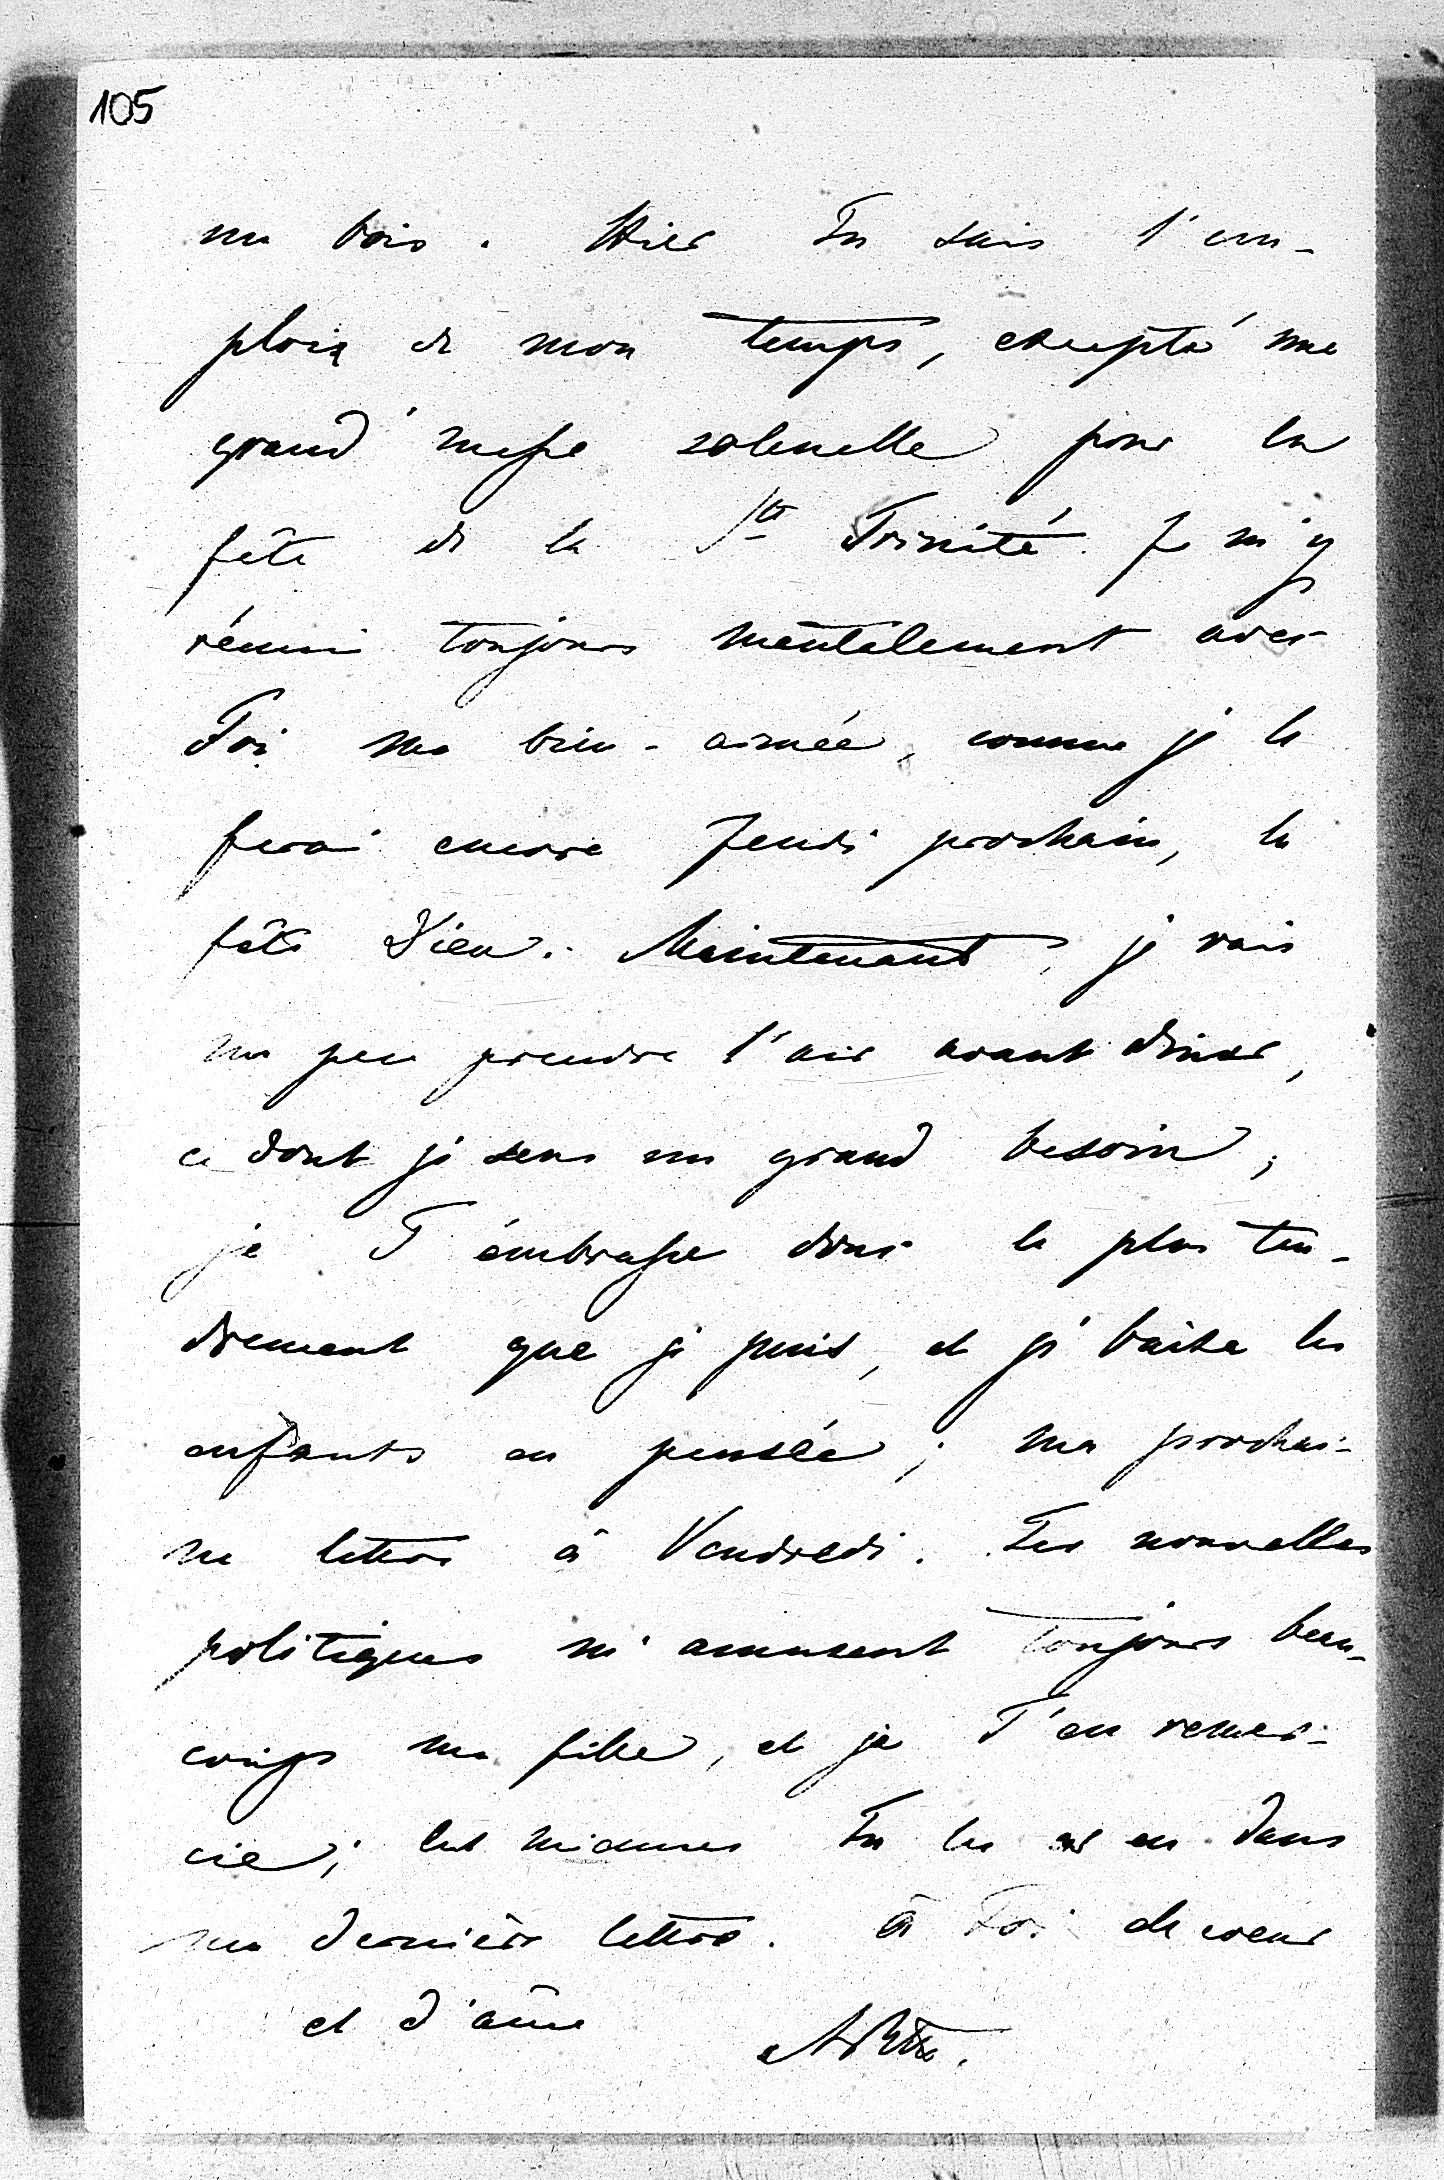 105
un bois. Hier Tu sais l'em-
ploi de mon temps, excepté une
grand' messe solenelle pour la
fête de la Ste Trinité. Je m'y
réuni toujours mentalement avec
Toi ma bien-aimée, comme je le
ferai encore Jeudi prochain, la
fête Dieu. Maintenant, je vais
un peu prendre l'air avant diner,
ce dont je sens un grand besoin;
je T'embrasse donc le plus ten-
drement que je puis, et je baise les
enfants en pensée; ma prochai-
ne lettre à Vendredi. Tes nouvelles
politiques m'amusent toujours beau-
coup ma fille, et je T'en remer-
cie; les miennes Tu les as eu dans
ma dernière lettre. à Toi de coeur
et d'âme